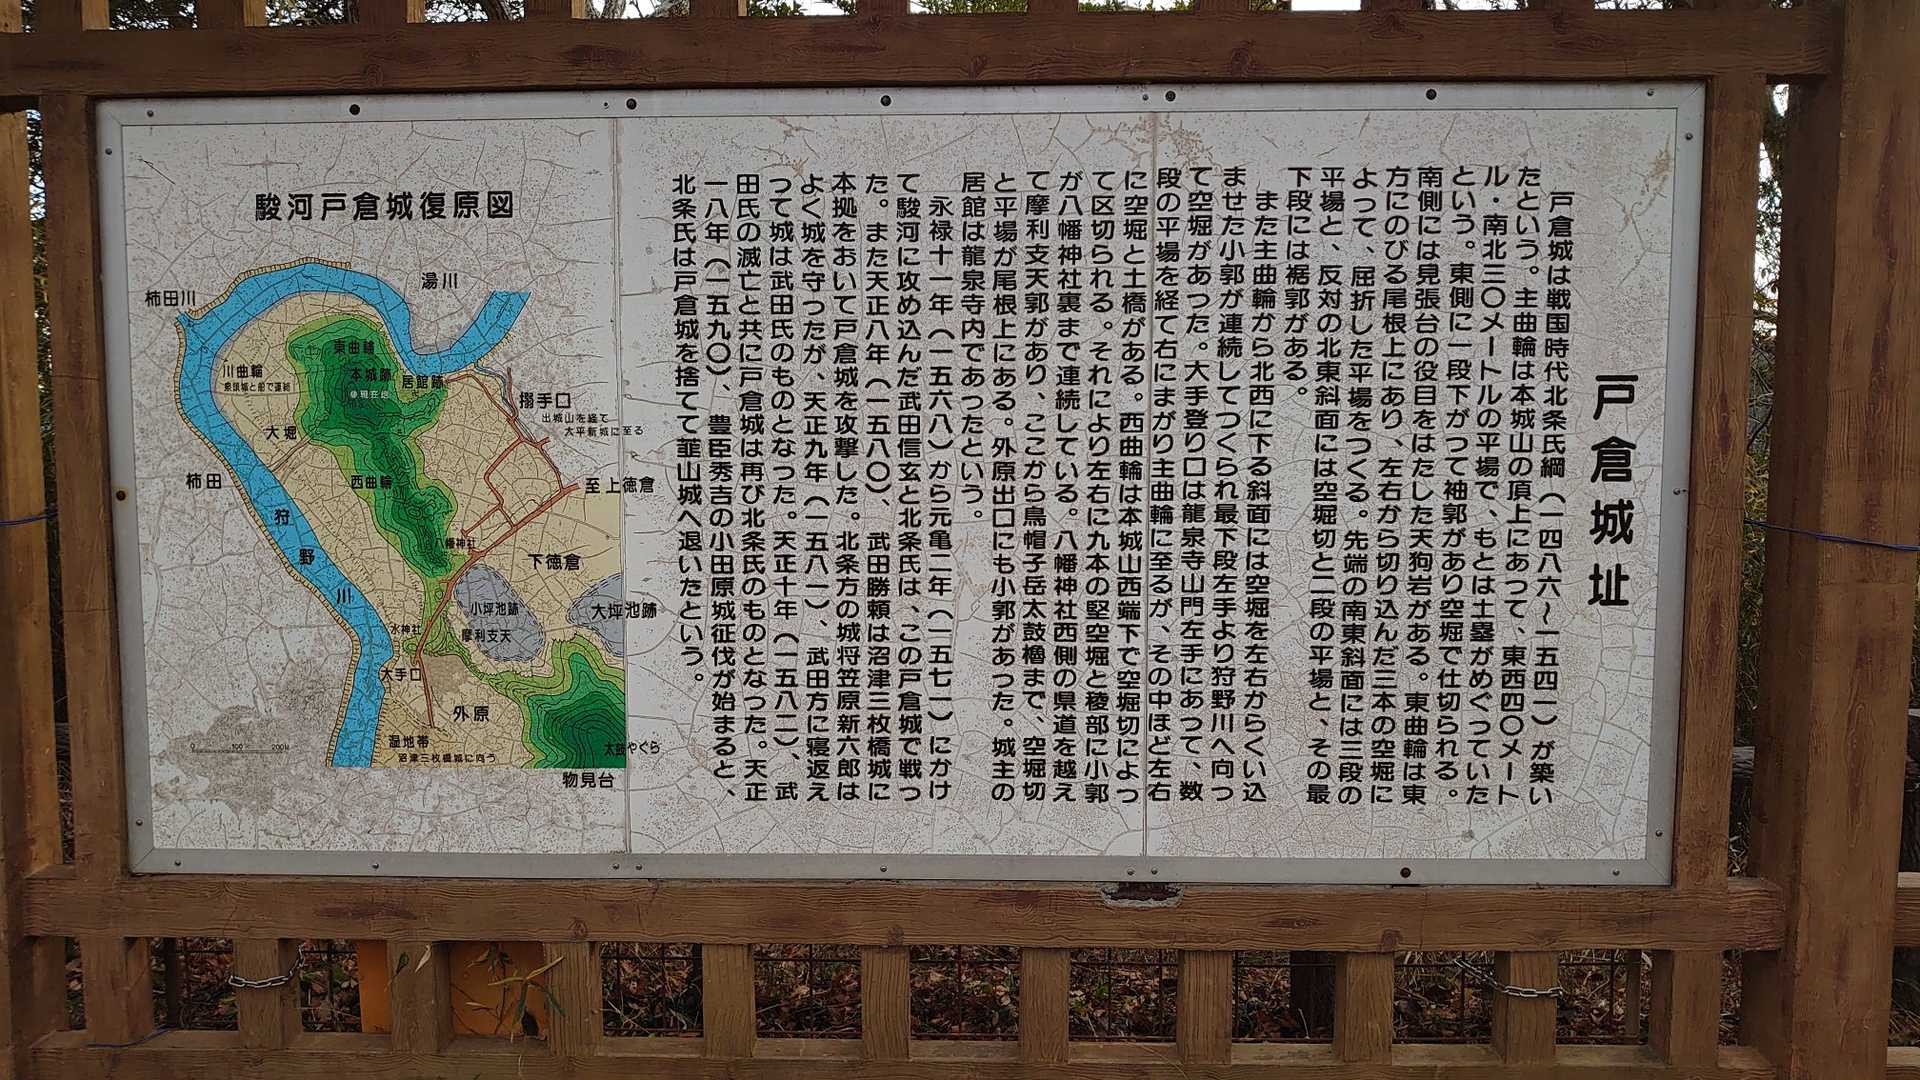 戸倉城址
戸倉城は戦国時代北条氏綱（一四八六～一五四一）が築い
たという。主曲輪は本城山の頂上にあって、東西四〇メート
ル・南北三〇メートルの平場で、もとは土塁がめぐっていた
という。東側に一段下がつて袖郭があり空堀で仕切られる。
南側には見張台の役目をはたした天狗岩がある。東曲輪は東
方にのびる尾根上にあり、左右から切り込んだ三本の空堀に
よって、屈折した平場をつくる。先端の南東斜面には三段の
平場と、反対の北東斜面には空堀切と二段の平場と、その最
下段には裾郭がある。
また主曲輪から北西に下る斜面には空堀を左右からくい込
ませた小郭が連続してつくられ最下段左手より狩野川へ向つ
て空堀があった。大手登り口は龍泉寺山門左手にあって、数
段の平場を経て右にまがり主曲輪に至るが、その中ほど左右
に空堀と土橋がある。西曲輪は本城山西端下で空堀切によっ
て区切られる。それにより左右に九本の堅空堀と稜部に小郭
が八幡神社裏まで連続している。八幡神社西側の県道を越え
て摩利支天郭があり、ここから烏帽子岳太鼓櫓まで、空堀切
と平場が尾根上にある。外原出口にも小郭があった。城主の
居館は龍泉寺内であったという。
永禄十一年（一五六八）から元亀二年（一五七一）にかけ
て駿河に攻め込んだ武田信玄と北条氏は、この戸倉城で戦っ
た。また天正八年（一五八〇）、武田勝頼は沼津三枚橋城に
本拠をおいて戸倉城を攻撃した。北条方の城将笠原新六郎は
よく城を守つたが、天正九年（一五八一）、武田方に寝返え
つて城は武田氏のものとなった。天正十年（一五八二）、武
田氏の滅亡と共に戸倉城は再び北条氏のものとなった。天正
一八年（一五九〇）、豊臣秀吉の小田原城征伐が始まると、
北条氏は戸倉城を捨てて韮山城へ退いたという。
駿河戸倉城復原図
湯川
柿田川
東曲輪
川曲輪
泉頭城と船で連絡
本城跡
居館跡
◎現在地
搦手口
出城山を経て
大平新城に至る
大堀
柿田
西曲輪
至上徳倉
狩野川
八幡神社
下徳倉
小坪池跡
大坪池跡
水神社
摩利支天
大手口
外原
湿地帯
沼津三枚橋城に向う
太鼓やぐら
物見台
0 100 200M